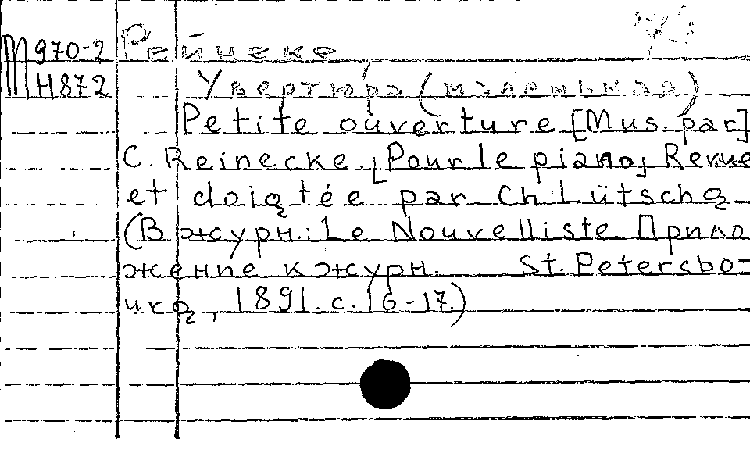 М970-2 Рейнеке
Н872 Увертюра (маленькая)
Petite ouverture [Mus. par]
C. Reinecke. [Pour le piano] Revue
et doigtée par Ch. Lütschg
(В журн.: Le Nouvelliste Прило
жение к журн. St. Petersbo-
urg, 1891. с. 16-17.)